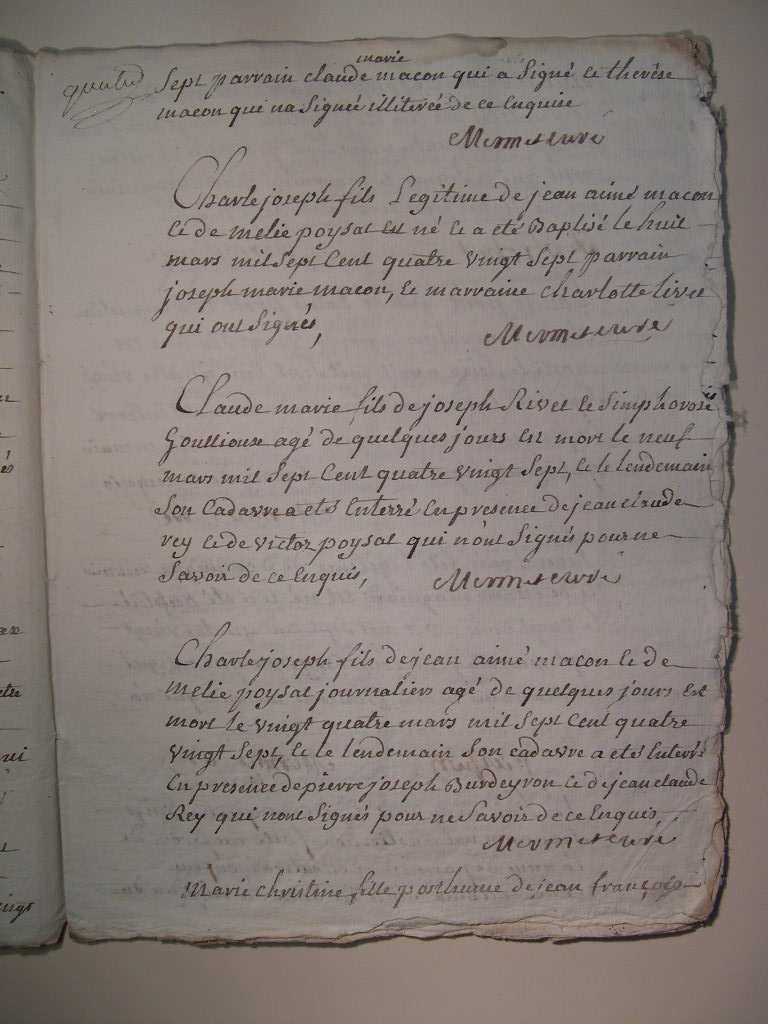 marie
Sept parrain claude macon qui a Signé et therèse
macon qui na Signée illiterée de ce Enquise
Mermet curé
Charle joseph fils Legitime de jean aimé macon
et de melie poysat est né et a eté Baptisé le huit
mars mil Sept Cent quatre vingt Sept parrain
joseph marie macon, et marraine charlotte livet
qui ont Signés,
Mermet curé
Claude marie fils de joseph Rivet et Simphorose
Goullioux agé de quelques jours Est mort le neuf
mars mil Sept Cent quatre vingt Sept, et le lendemain
Son Cadavre a eté Enterré En presence de jean claude
rey et de victor poysat qui n'ont Signés pour ne
Savoir de ce Enquis,
Mermet curé
Charle joseph fils de jean aimé macon et de
melie poysat journaliers agé de quelques jours Est
mort le vingt quatre mars mil Sept Cent quatre
vingt Sept, et le lendemain Son cadavre a eté Enterré
En presence de pierre joseph Burdeyron et de jean claude
Rey qui nont Signés pour ne Savoir de ce Enquis,
Mermet curé
Marie christine fille posthume de jean françois